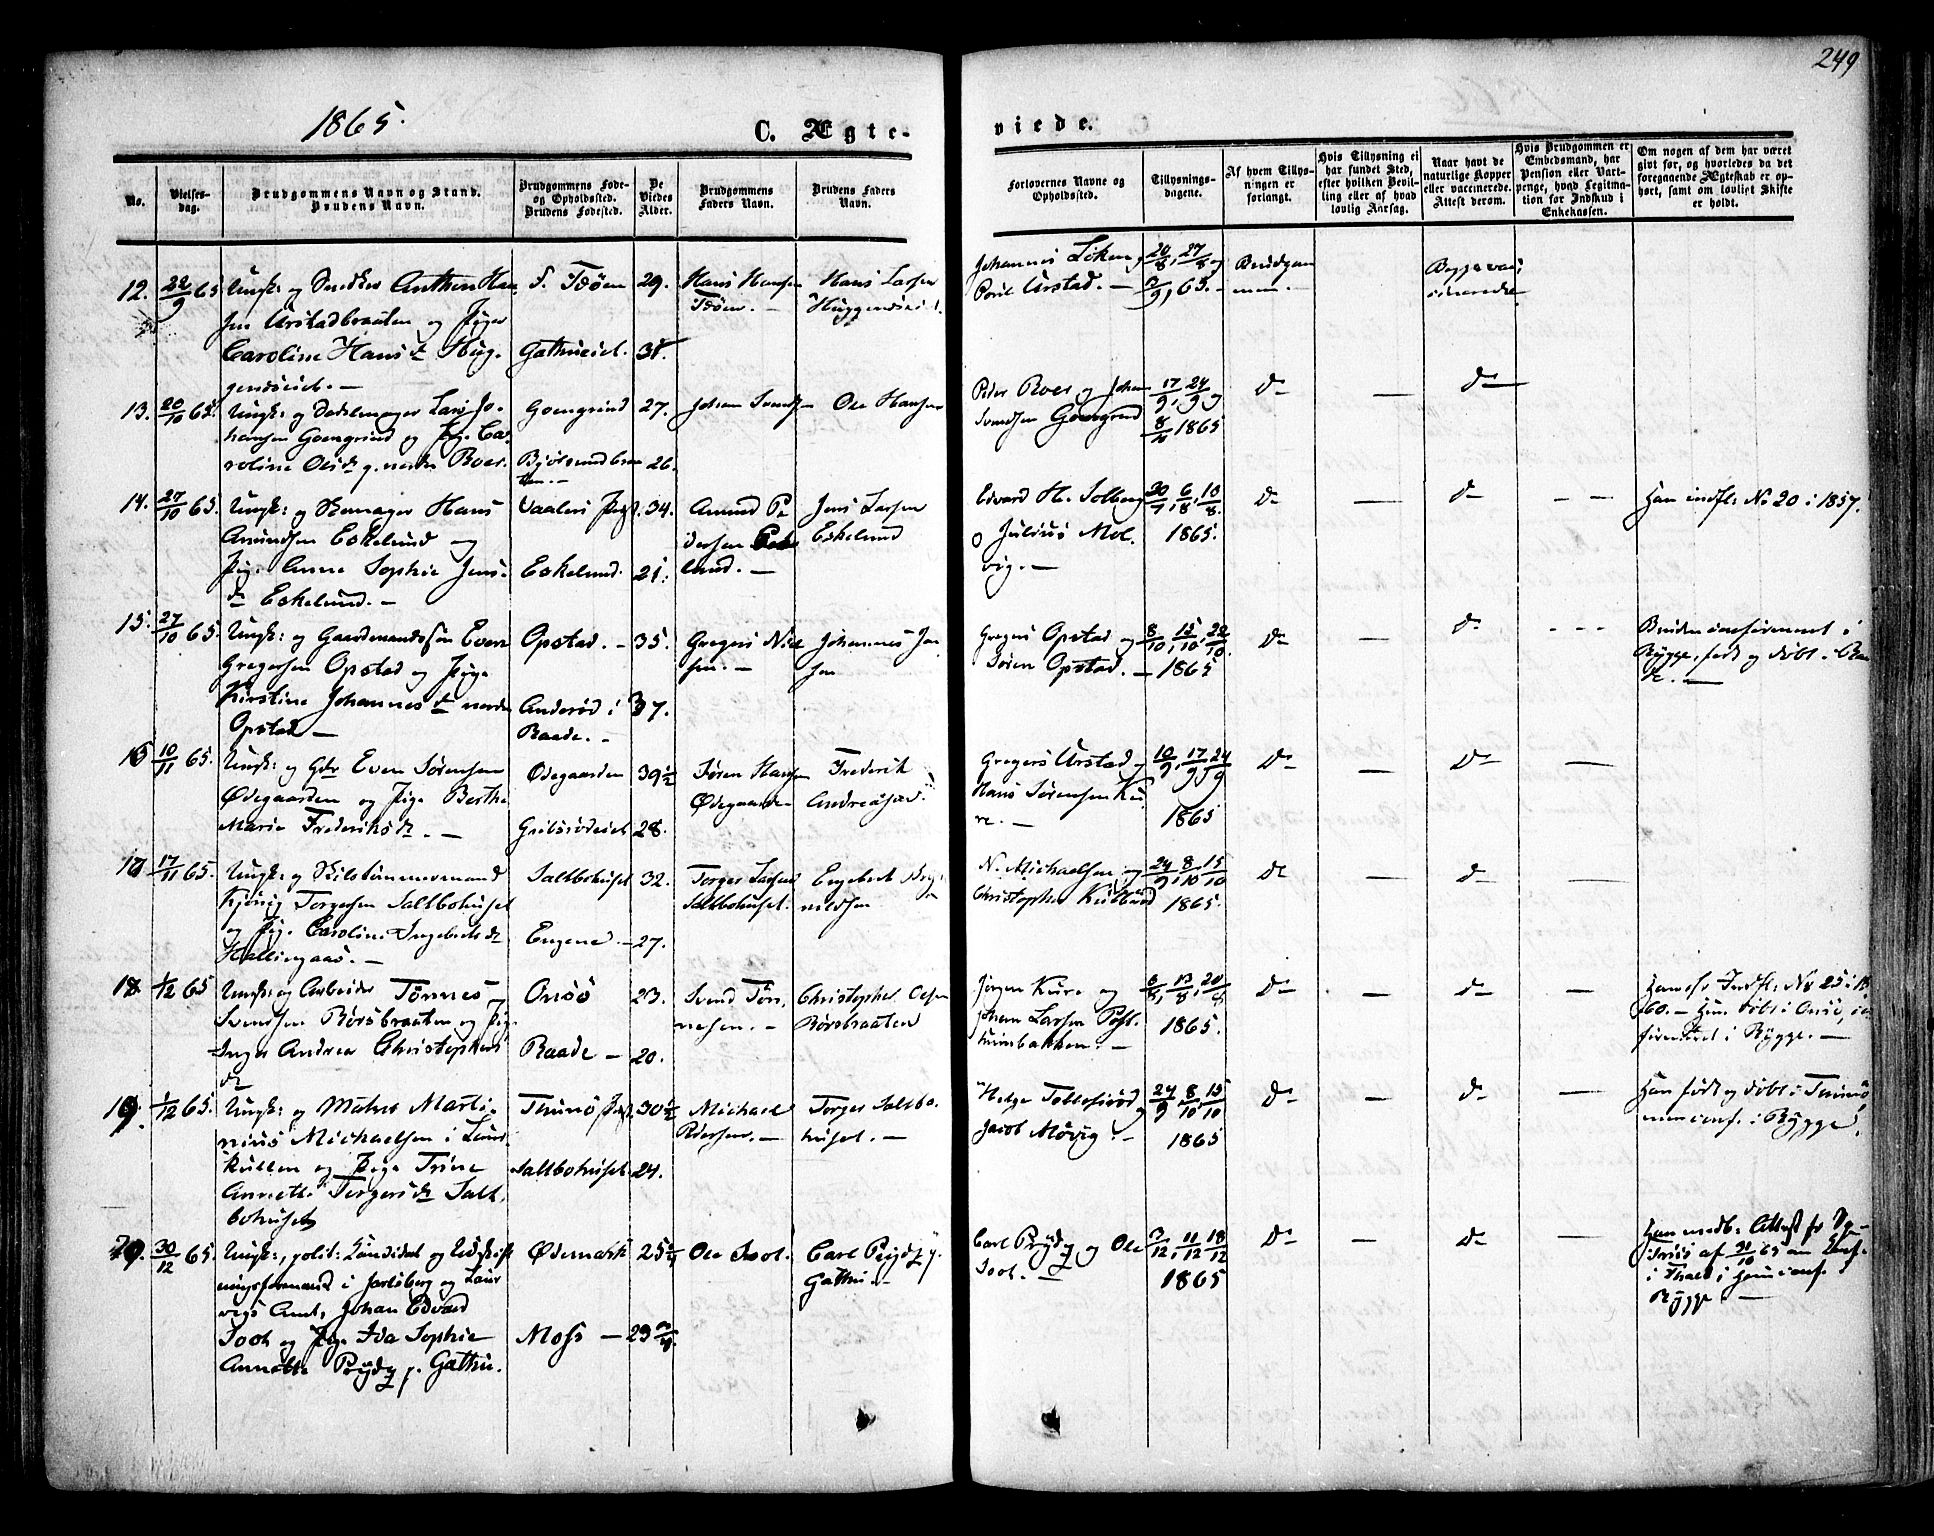 249
1865.
C. Ægte-
viede.
No.
Vielses-
dag.
Brudgommens Navn og Stand.
Brudens Navn.
Brudgommens Føde-
og Opholdssted.
Brudens Fødested.
De
Viedes
Alder.
Brudgommens
Faders Navn.
Brudens Faders
Navn.
Forlovernes Navne og
Opholdssted.
Tillysnings-
dagene.
Af hvem Tillys-
ningen er
forlangt.
Hvis Tillysning ei
har fundet Sted,
efter hvilken Bevil-
ling eller af hvad
lovlig Aarsag.
Naar havt de
naturlige Kopper
eller vaccinerede.
Attest derom.
Hvis Brudgommen er
Embedsmand, har
Pension eller Vart-
penge, hvad Legitima-
tion for Indskud i
Enkekassen.
Om nogen af dem har været
gift før, og hvorledes da det
foregaaende Ægteskab er op-
hørt, samt om lovligt Skifte
er holdt.
12. 22/9 65 Ungk: og Snedker Anthon Han
sen Aarstadbraaten og Pige
Caroline Hansd. Hug-
gendseiet. —
Gathueiet. 29. 31.
Hans Hansen
Hans Larsen
Huggendseiet.
Johannes Løken og
Poul Urstad. —
20/8, 27/8 og
3/9, 65. —
Brudgom
men. —
Begge vac
cinerede
13. 20/10 65. Ungk: og Lars Jo-
hansen Goengrind og Pige Ca-
roline Olsd. Roer.
Goengrind 27. Johan Svends. — Ole Hansen
26.
Peder Roer og Johan
Svendsen Goengrind
17/9, 24/9 og
8/10 1865
Do —
Do
14. 27/10 65. Ungk: og Hans
Amundsen Eskelund og
Pige Anne Sophie Jens-
d. Eskelund. —
Vaaler Pgd. 34.
Eskelund. 21.
Amund Pe
dersen Eske
lund. —
Jens Larsen
Eskelund
Edvard H. Solberg
o Julius Mol.
vig. —
30/7, 6/8, 13/8.
1865.
Do — Do — — Han indfl: No 20 i 1857.
15. 27/10 65. Ungk: og Gaardmandssøn Even
Gregersen Opstad og Pige
Kirstine Johannesd.
Opstad —
Opstad. — 35.
Anderød i 37.
Raade. —
Gregers Niel
sen. —
Johannes Jen
sen
Gregers Opstad og
Søren Opstad. —
8/10, 15/10, 22/10.
1865
Do — Do - - - Bruden confirmeret i
Rygge, født og døbt i Raa
de. —
16 10/11 65. Ungk: og Gdr Even Sørensen
Ødegaarden og Pige Berthe
Marie Frederiksd. —
Ødegaarden 39 1/2
28.
Søren Hansen
Ødegaarden
Frederik
Andreasen
Gregers Urstad og
Hans Sørensen Ku
re. —
10/9, 17/9 24/9
1865
Do — Do —
17 17/11 65. Ungk: og
Torgersen Saltbohuset
og Pige Caroline Ingebretsd.
Hallingaas. —
Saltbohuset 32.
Engene. — 27.
Torger Larsen
Saltbohuset.
N. Michaelsen og
Christopher
24/9, 8/10, 15/10
1865.
Do — Do —
18. 1/12 65 Ungk: og Arbeider Tönnes
Svendsen Rörsbraaten og Pige
Inger Andrea Christophers
d.
Onsö 23.
Raade — 20.
Svend Tön-
nesen. —
Christopher Olsen
Rörsbraaten
Jørgen Kure og
Johan Larsen
6/8, 13/8, 20/8
1865.
Do — Do — Han er Indfl: No 25 i 18
60. — Hun døbt i Onsö, con
firmeret i Rygge. —
19. 1/12 65. Ungk: og Matros Marti-
nius Michaelsen i Laur-
kullen og Pige Trine
Annette Torgersd. Salt-
bohuset
Thunö Pgd. 30 1/2
Saltbohuset 24.
Michael
Pedersen. —
Torger Saltbo-
huset. —
Helge og
Jacob Mövig. —
24/9, 8/10, 15/10
1865
Do — Do — Han født og døbt i Thunö
men conf. i Rygge.
20. 30/12 65. Ungk:, polit: Kandidat og Udskift
ningsformand i Jarlsberg og Laur
vigs Amt, Johan Edvard
Soot og Pige Ida Sophie
Annette Prydz p. Gathu.
Ødemark 25 1/4
Moss — 23 3/4
Ole Soot.
Carl Prydz p.
Gathu. —
Carl Prydz og Ole
Soot. —
3/12, 11/12 18/12
1865
Do — Do — Han medb: Attest fr
af 31/10 65 om Conf.
i Hun conf. i
Rygge —